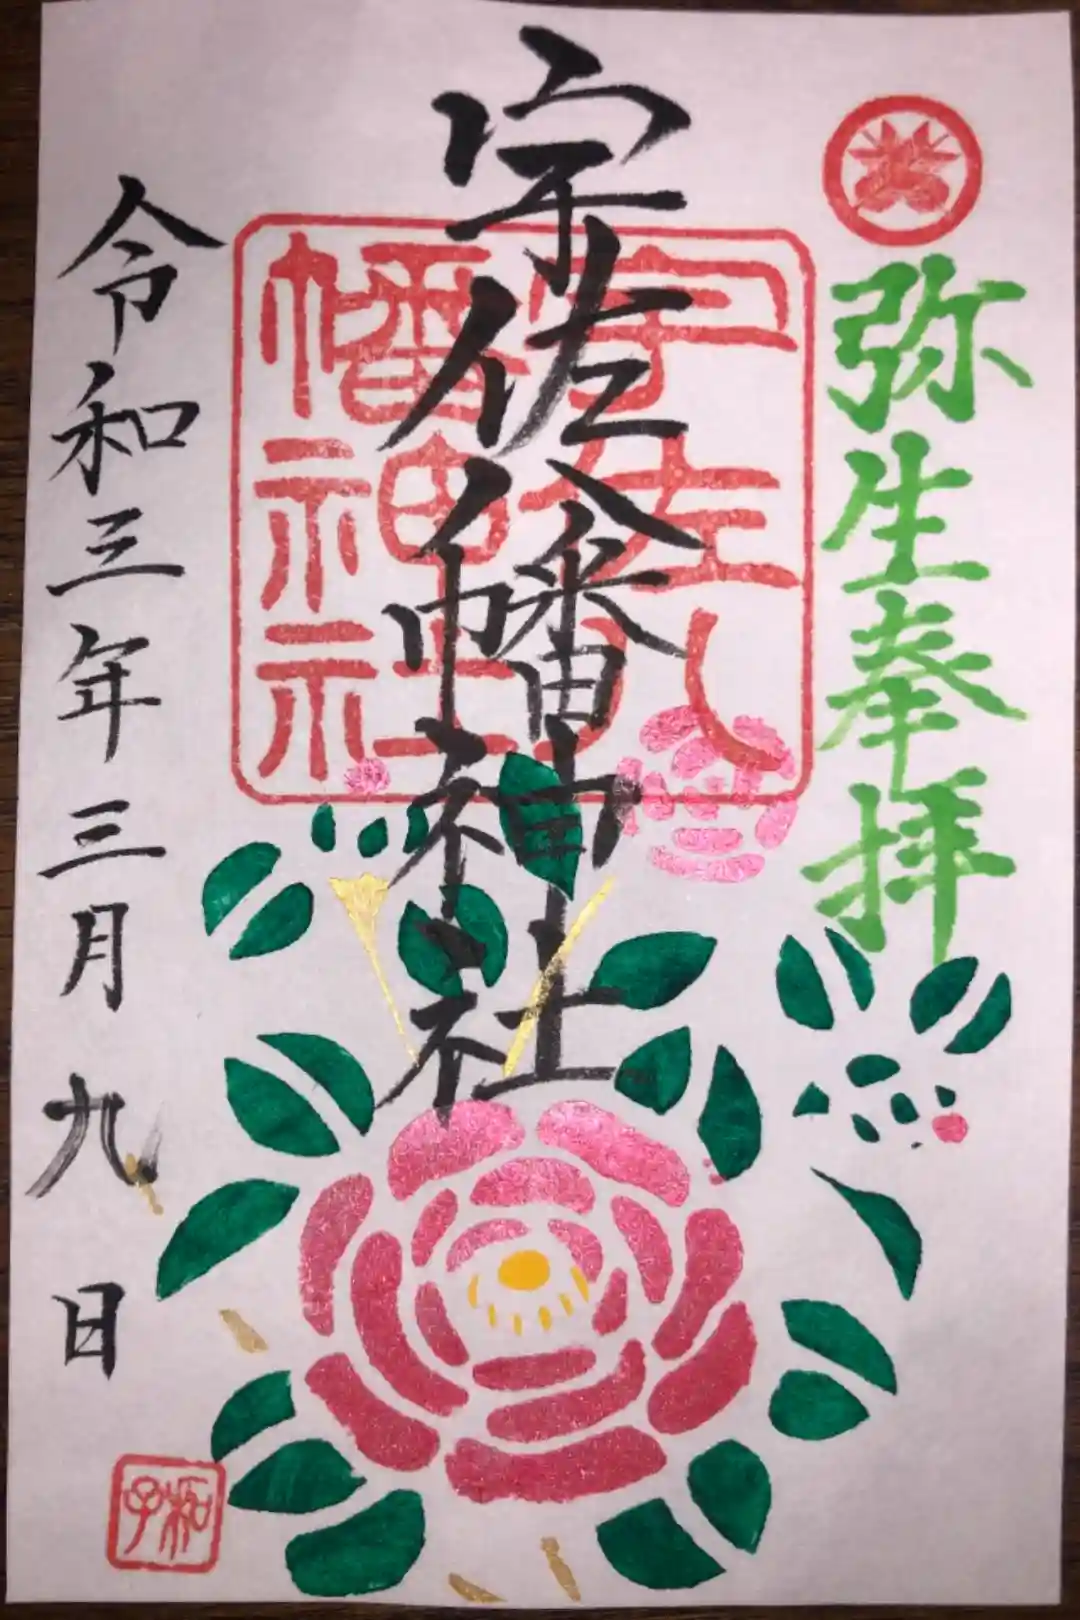 弥生奉拝
宇佐八幡神社
宇佐八
幡神社
令和三年三月九日